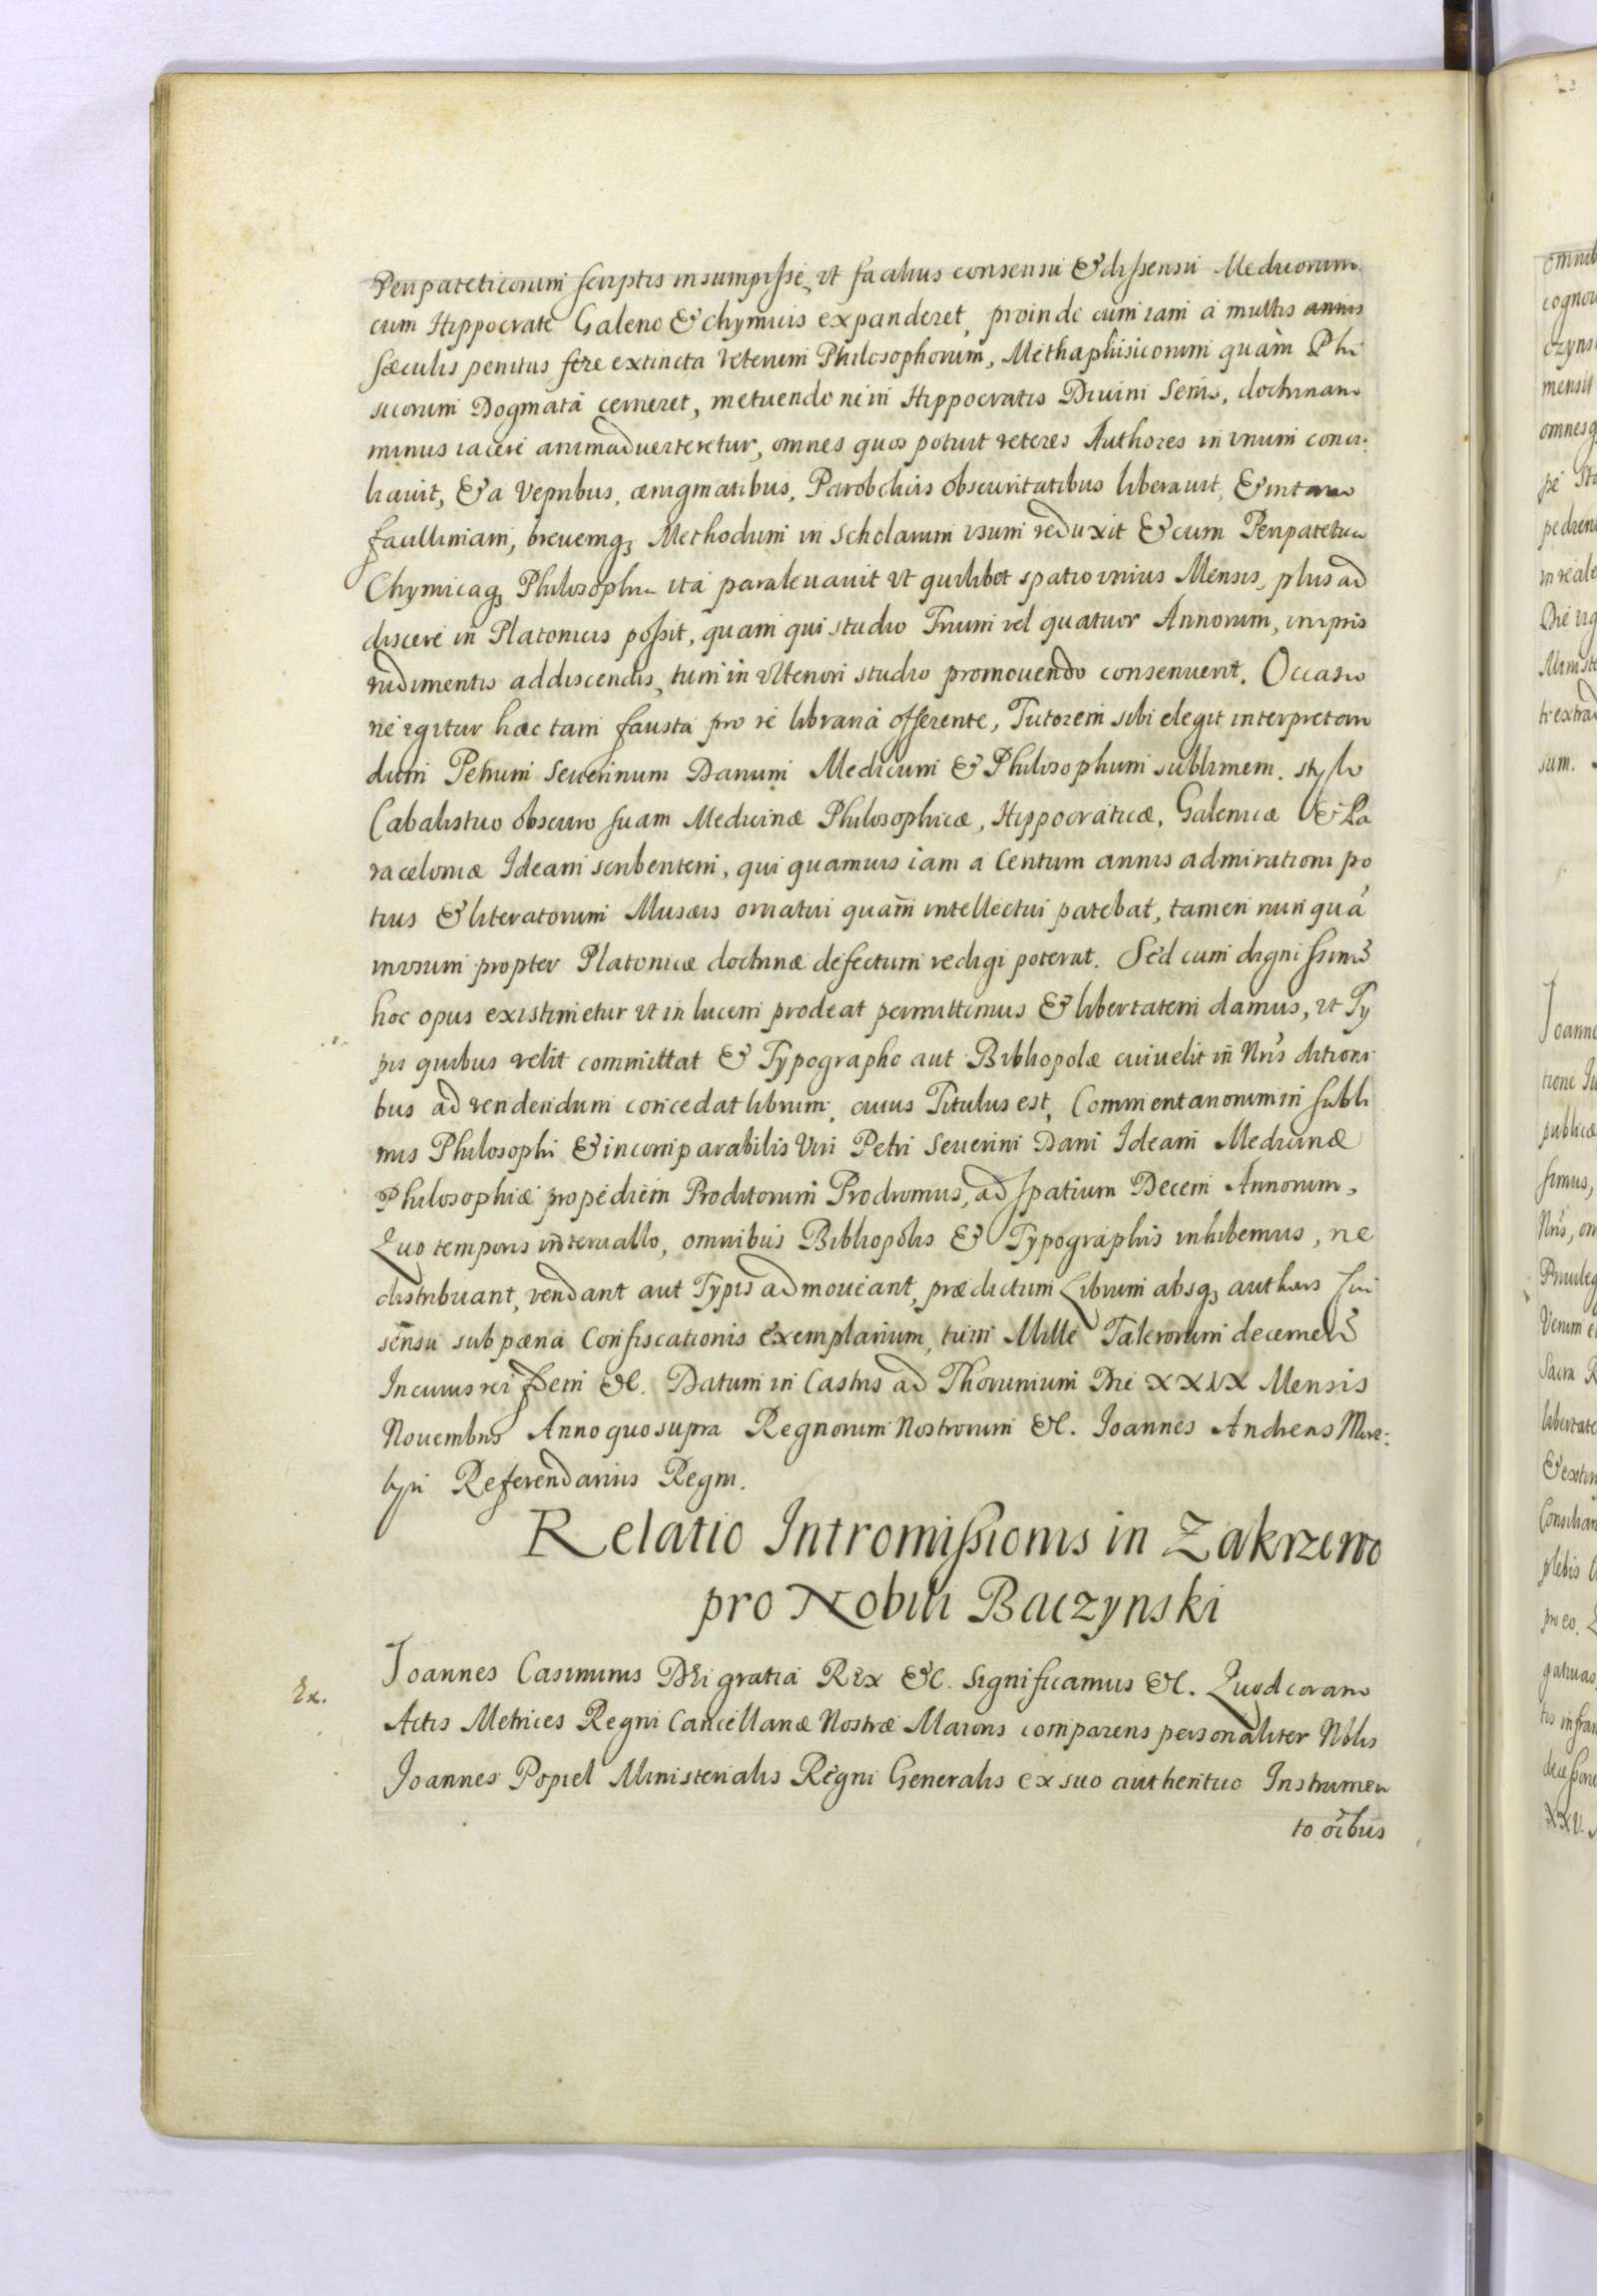 Peripateticorum scriptis insumpsisse, vt facilius consensu & dissensu Medicorum
cum Hippocrate Galeno & chymicis expanderet, proinde cum iam à multis annis
sæculis penitus fere extincta veterum Philosophorum, Methaphisicorum quàm Phi
sicorum Dogmata cerneret, metuendo ne in Hippocratis Diuini Senis, doctrinam
minus iacere animaduerteretur, omnes quos potuit veteres Authores in vnum conci:
liauit, & a Vepribus, ænigmatibus, obscuritatibus liberauit, & in tam
facillimam, breuemq₃ Methodum in Scholarum vsum reduxit & cum Peripatetica
Chymicaq₃ Philosophia ita paraleuauit vt quilibet spatio vnius Mensis, plus ad
discere in Platonicis possit, quam qui studio Trium vel quatuor Annorum, in ipsis
rudimentis addiscendis, tum in vlteriori studio promouendo consenuerit. Occasio
ne igitur hac tam fausta pro re libraria offerente, Tutorem sibi elegit interpretan
dum Petrum Seuerinum Danum Medicum & Philosophum sublimem. stylo
Cabalistico obscuro suam Medicinæ Philosophicæ, Hippocraticæ, Galenicæ & Pa
racelsicæ Ideam scribentem, qui quamuis iam a Centum annis admirationi po
tius & literatorum Musæis ornatui quam̃ intellectui patebat, tamen nunquã
in vsum propter Platonicæ doctrinæ defectum redigi poterat. Sed cum dignissimũ
hoc opus existimetur vt in lucem prodeat permittimus & libertatem damus, vt Ty
pis quibus velit committat & Typographo aut Bibliopolæ cui velit in Nris ditioni
bus ad vendendum concedat librum, cuius Titulus est, Commentariorum in subli
mis Philosophi & incomparabilis Viri Petri Seuerini Dani Ideam Medicinæ
Philosophiæ propediem Proditorum Prodromus, ad spatium Decem Annorum,
Quo temporis interuallo, omnibus Bibliopolis & Typographis inhibemus, ne
distribuant, vendant aut Typis admoueant, prædictum Librum absq₃ authoris
sensu sub pæna Confiscationis exemplarium, tum Mille Talerorum decernen
In cuius rei fidem &c. Datum in Castris ad Thorunium Die XXIX Mensis
Nouembris Anno quo supra Regnorum Nostrorum &c. Ioannes Andreas More:
lyn Referendarius Regni.
Relatio Intromissionis in Zakrzewo
pro Nobili Baczynski
Ex.
Ioannes Casimirus Dei gratia Rex &c. Significamus &c. Quod coram
Actis Metrices Regni Cancellariæ Nostræ Maioris comparens personaliter Nblis
Joannes Popiel Ministerialis Regni Generalis ex suo authentico Instrumen
to oĩbus